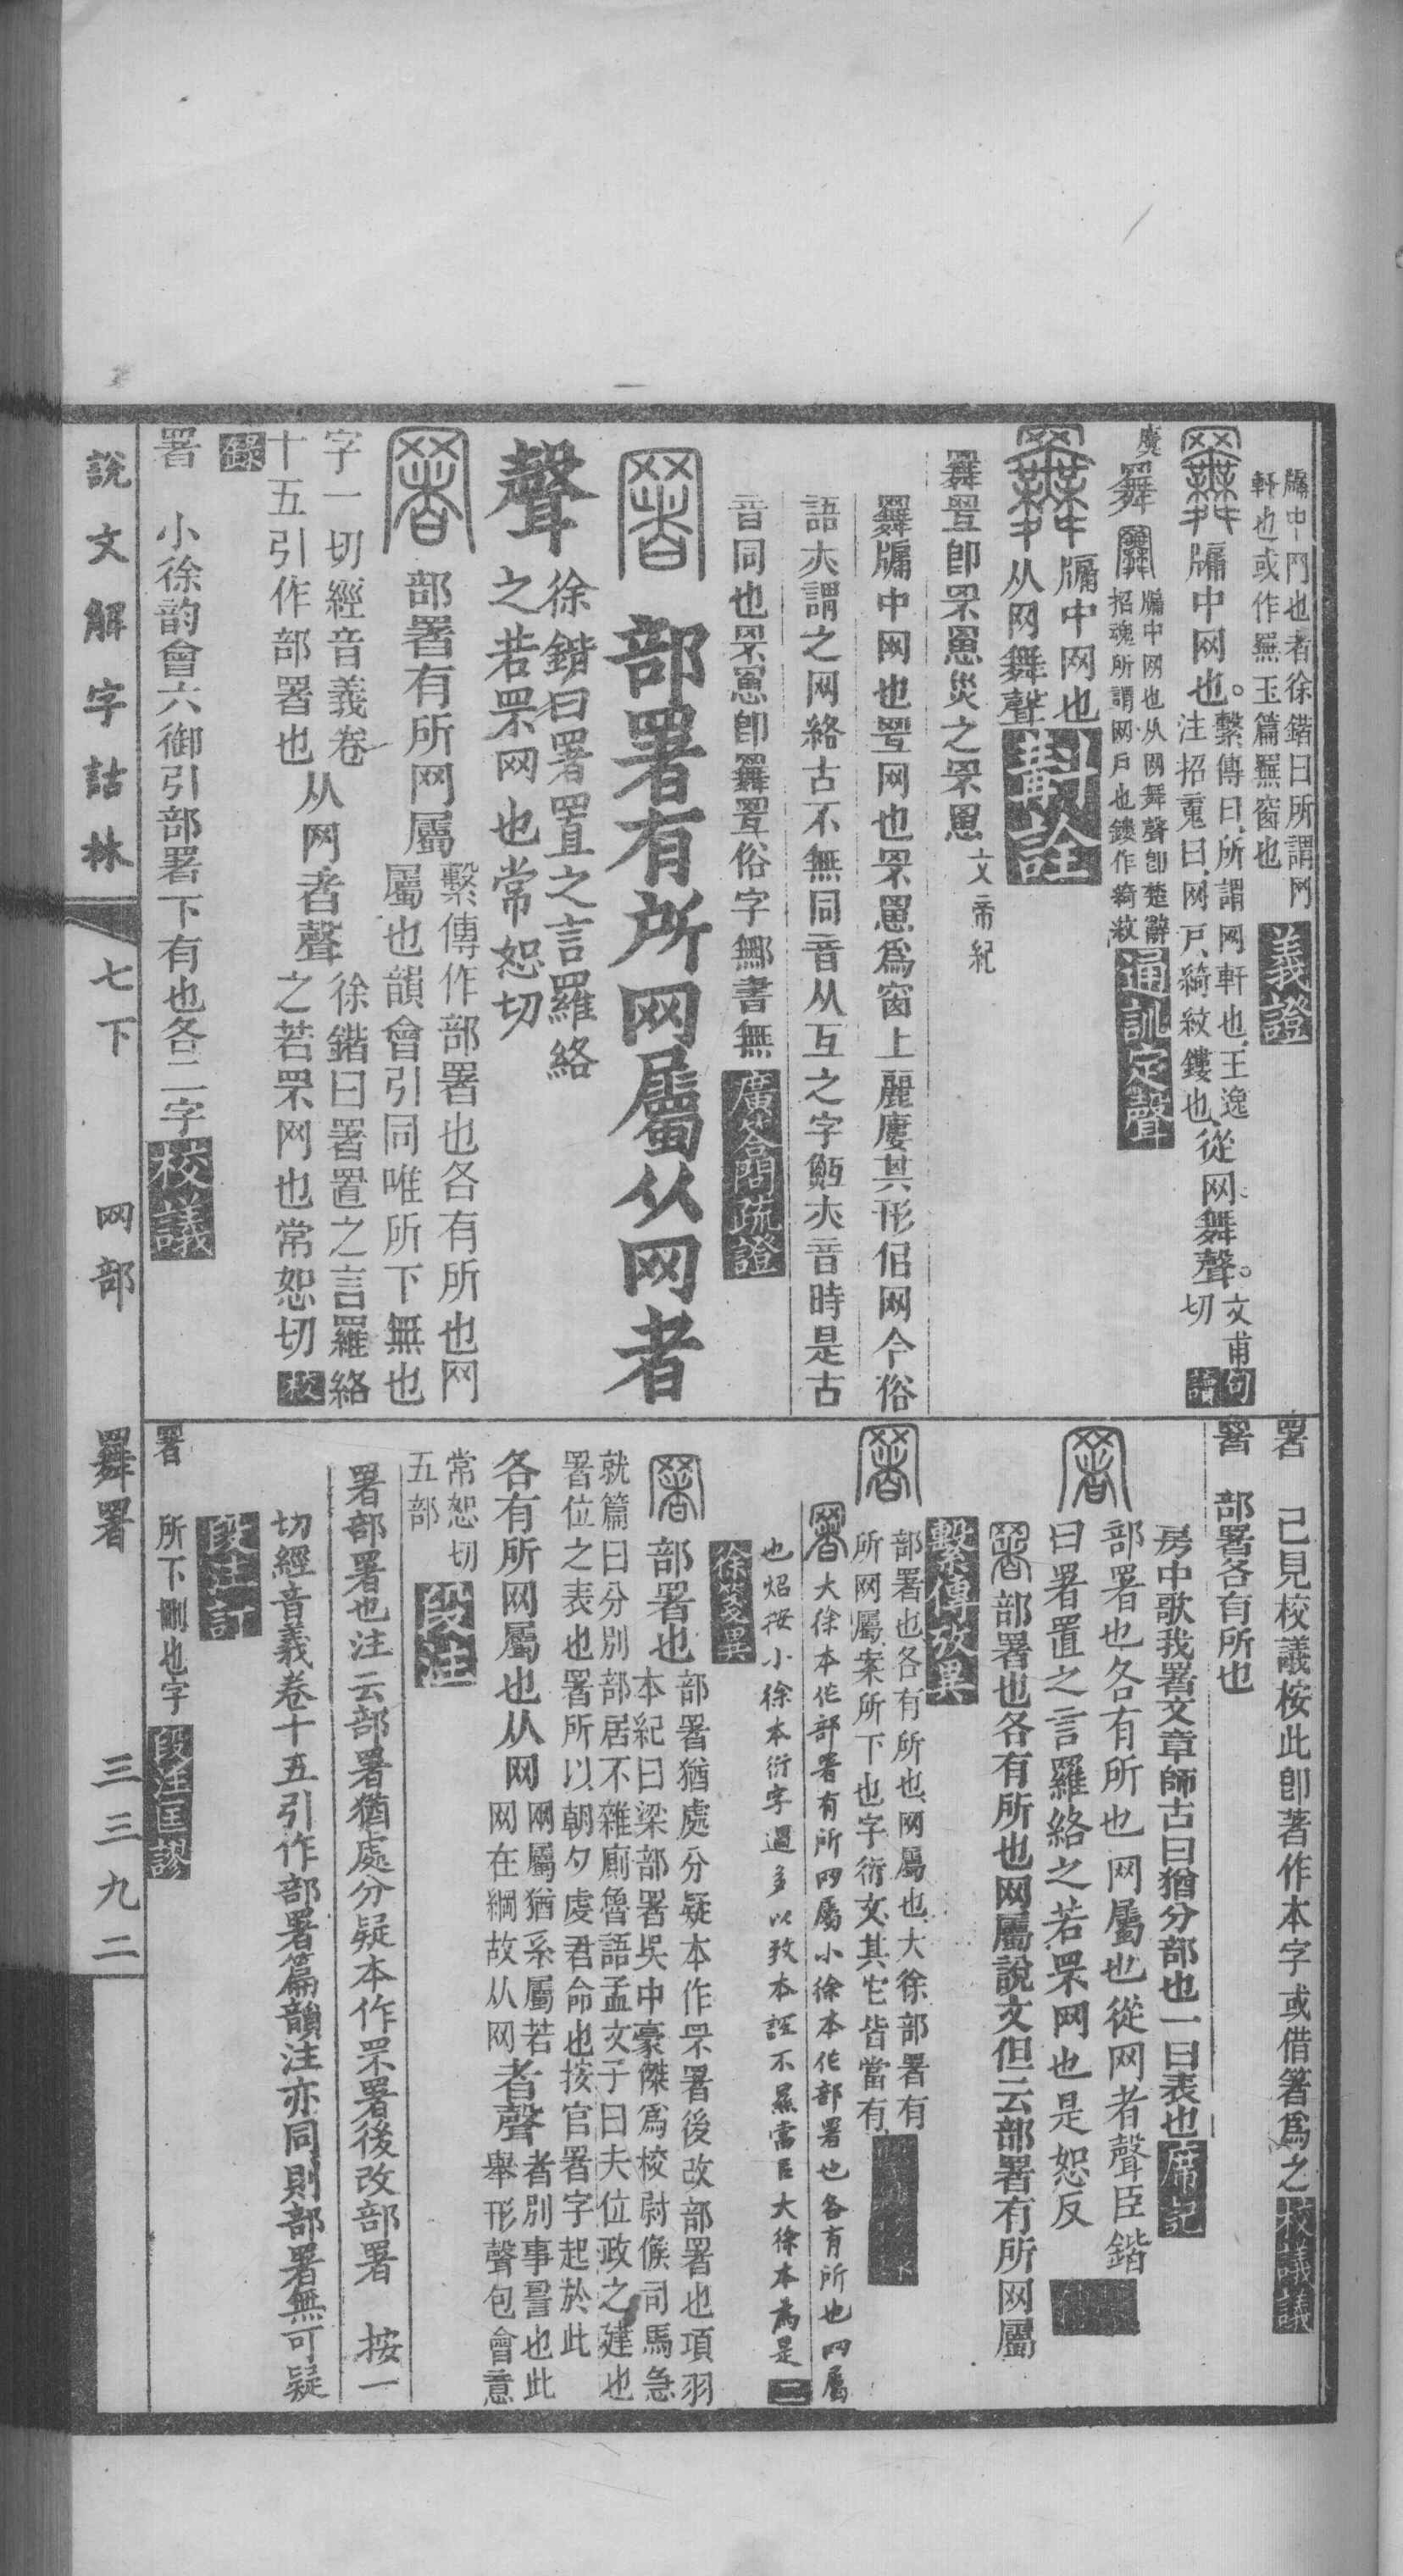 牖中网也者徐鍇曰所謂网
軒也或作䍢玉篇䍢窗也
義證
牖中网也。繫傳曰、所謂网軒也、王逸
注招䰟曰、网戸、綺紋鏤也、從网、舞聲。文甫
切
句
讀
牖中网也从网舞聲卽楚辭
招魂所謂网戶也鏤作綺紋
通訓定聲
牖中网也
从网舞聲
斠詮
卽罘罳災之罘罳文帝紀
牖中网也罜网也罘罳爲窗上麗廔其形侶网今俗
語亦謂之网絡古不無同音从互之字
亦音時是古
音同也罘罳卽
俗字鄦書無
廣答問疏證
部署有所网屬从网者
聲
徐鍇曰署置之言羅絡
之若罘网也常恕切
部署有所网屬
繫傳作部署也各有所也网
屬也韻會引同唯所下無也
字一切經音義卷
十五引作部署也
从网者聲
徐鍇曰署置之言羅絡
之若罘网也常恕切
校
錄
署 小徐韵會六御引部署下有也各二字
校議
署 已見校議桉此卽著作本字或借箸爲之
校議議
署 部署各有所也
房中歌我署文章師古曰猶分部也一曰表也
席記
部署也各有所也网屬也從网者聲臣鍇
曰署置之言羅絡之若罘网也是恕反
部署也各有所也网屬說文但云部署有所网屬
繫傳攷異
部署也各有所也网屬也大徐部署有
所网屬案所下也字衍文其它皆當有
大徐本作部署有所网屬小徐本作部署也各有所也网屬
也炤按小徐本衍字過多以致本誼不㬎當㠯大徐本爲是
二
徐箋異
部署也
部署猶處分疑本作罘署後改部署也項羽
本紀曰梁部署吳中豪傑爲校尉候司馬急
就篇曰分別部居不雜廁魯語孟文子曰夫位政之建也
署位之表也署所以朝夕虔君命也按官署字起於此
各有所网屬也从网
网屬猶系屬若
网在綱故从网
者聲
者別事䛐也此
舉形聲包會意
常恕切
五部
段注
署部署也注云部署猶處分疑本作罘署後改部署 按一
切經音義卷十五引作部署篇韻注亦同則部署無可疑
段注訂
署 所下刪也字
段注匡謬
說文解字詁林 七下 网部 䍢署 三三九二